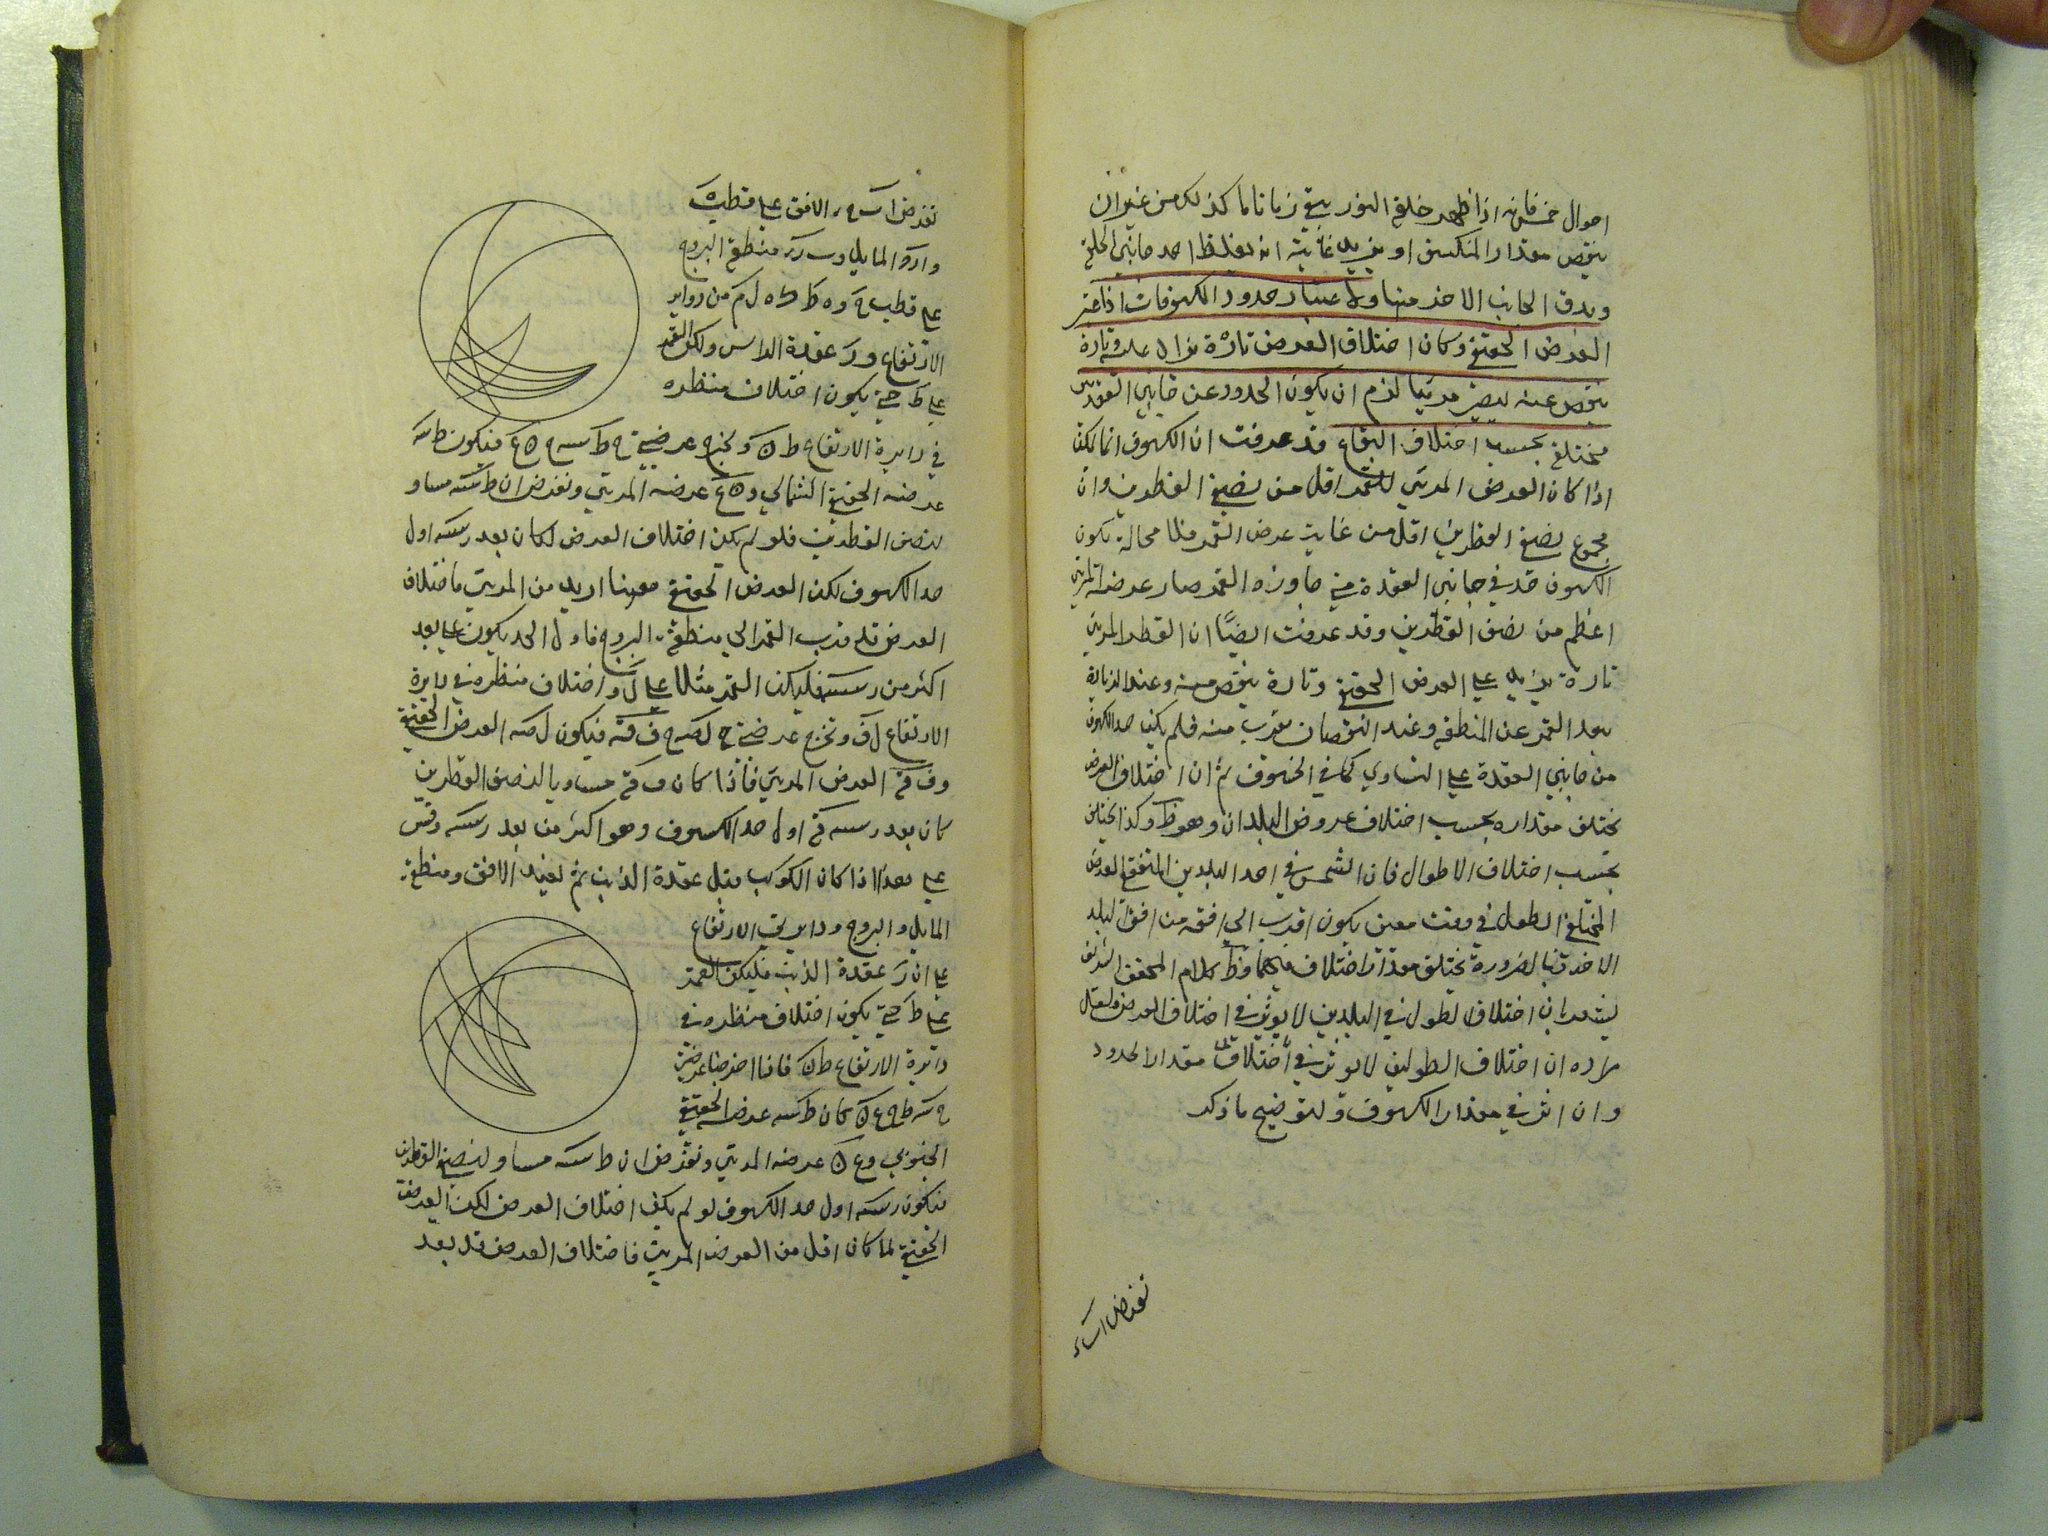 احوال خمس فانه اذا ظهر حلقة النور يبقى زمانا ما كذلك من غير ان
ينقص مقدار المنكسف او يزيد غايته انه يغلظ احد جانبي الحلقة
ويدق الجانب الاخر منها ولاعتبار حدود الكسوفات اذا اعتبر
العرض الحقيقي وكان اختلاف العرض تارة يزاد عليه وتارة
ينقص عنه ليصير مرئيا لزم ان يكون الحدود عن جانبي العقدتين
مختلفة بحسب اختلاف البقاع قد عرفت ان الكسوف انما يمكن
اذا كان العرض المرئي للقمر اقل من نصف القطرين وان
مجموع نصف القطرين اقل من غاية عرض القمر فلا محالة يكون
للكسوف حد في جانبي العقدة متى جاوزه القمر صار عرضه المرئي
اعظم من نصف القطرين وقد عرفت ايضا ان القطر المرئي
تارة يزيد على العرض الحقيقي وتارة ينقص منه وعند الزيادة
يبعد القمر عن المنطقة وعند النقصان يقرب منه فلم يكن حد الكسوف
من جانبي العقدة على التساوي كما في الخسوف ثم ان اختلاف العرض
يختلف مقداره بحسب اختلاف عروض البلدان وهو ظ وكذا يختلف
بحسب اختلاف الاطوال فان الشمس في احد البلدين المتفقي العرض
المختلفي الطول في وقت معين يكون اقرب الى افقه من افق البلد
الاخر فبالضرورة يختلف مقدار اختلاف فيهما وظ كلام المحقق الشريف
يشعر بان اختلاف الطول في البلدين لا يؤثر في اختلاف العرض ولعل
مراده ان اختلاف الطولين لا يؤثر في اختلاف مقدار الحدود
وان اثر في مقدار الكسوف ولتوضيح ما ذكر
نفرض اب
نفرض اب الافق على قطب ه
و ا ر المايل و ب ر منطقة البروج
على قطب ح و ه ط ه ل م من دواير
الارتفاع و ر عقدة الراس وليكن القمر
على ط حتى يكون اختلاف منظره
في دايرة الارتفاع ط ك ونخرج عرضيتي ح ط س ح ك ع فيكون ط س
عرضه الحقيقي الشمالي و ك ع عرضه المرئي ونفرض ان ط س مساو
لنصف القطرين فلو لم يكن اختلاف العرض لكان بعد ر س اول
حد الكسوف لكن العرض الحقيقي ههنا ازيد من المرئي فاختلاف
العرض قد قرب القمر الى منطقة البروج فاول الحد يكون على بعد
اكثر من ر س فليكن القمر مثلا على ل واختلاف منظره في دايرة
الارتفاع ل ف ونخرج عرضيتي ح ل ص ح ف ق فيكون ل ص العرض الحقيقي
و ف ق العرض المرئي فاذا كان ف ق مساويا لنصف القطرين
كان بعد ر ق اول حد الكسوف وهو اكثر من بعد ر س وقس
على هذا اذا كان الكوكب قبل عقدة الذنب ثم نعيد الافق ومنطقة
المايل والبروج ودايرتي الارتفاع
على ان ر عقدة الذنب فليكن القمر
على ط حتى يكون اختلاف منظره في
دايرة الارتفاع ط ك فاذا اخرجنا عرضيتي
ح س ط ح ع ك كان ط س عرضه الحقيقي
الجنوبي و ع ك عرضه المرئي ونفرض ان ط س مساو لنصف القطرين
فيكون ر س اول حد الكسوف لو لم يكن اختلاف العرض لكن العرض
الحقيقي لما كان اقل من العرض المرئي فاختلاف العرض قد بعد